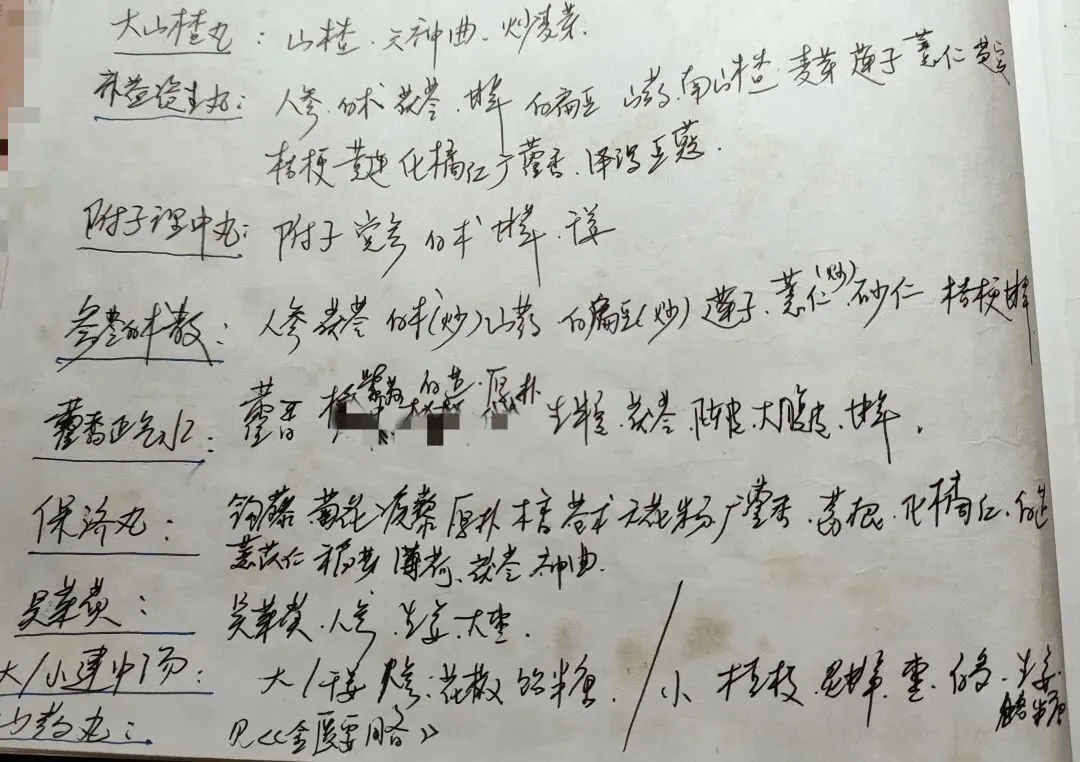 大山楂丸：山楂、六神曲、炒麦芽
补益资生丸：人参、白术 茯苓、甘草 白扁豆 山药、南山楂、麦芽 莲子 薏仁 芡实
桔梗 黄连 化橘红 广藿香、泽泻 豆蔻.
附子理中丸：附子 党参 白术 甘草、干姜
参苓白术散：人参 茯苓 白术(炒) 山药 白扁豆(炒) 莲子、薏仁(炒) 砂仁 桔梗 甘草
藿香正气水：藿香 紫苏 白芷、厚朴 生半夏、茯苓、陈皮、大腹皮、甘草.
保济丸：钩藤、菊花 蒺藜 厚朴 木香 苍术 天花粉 广藿香、葛根、化橘红、白芷
薏苡仁 稻芽 薄荷、茯苓 神曲.
吴茱萸：吴茱萸、人参、生姜、大枣.
大/小建中汤：大/干姜 人参、花椒 饴糖 / 小 桂枝、甘草、枣、白芍、生姜
饴糖
山药丸：见《金匮要略》